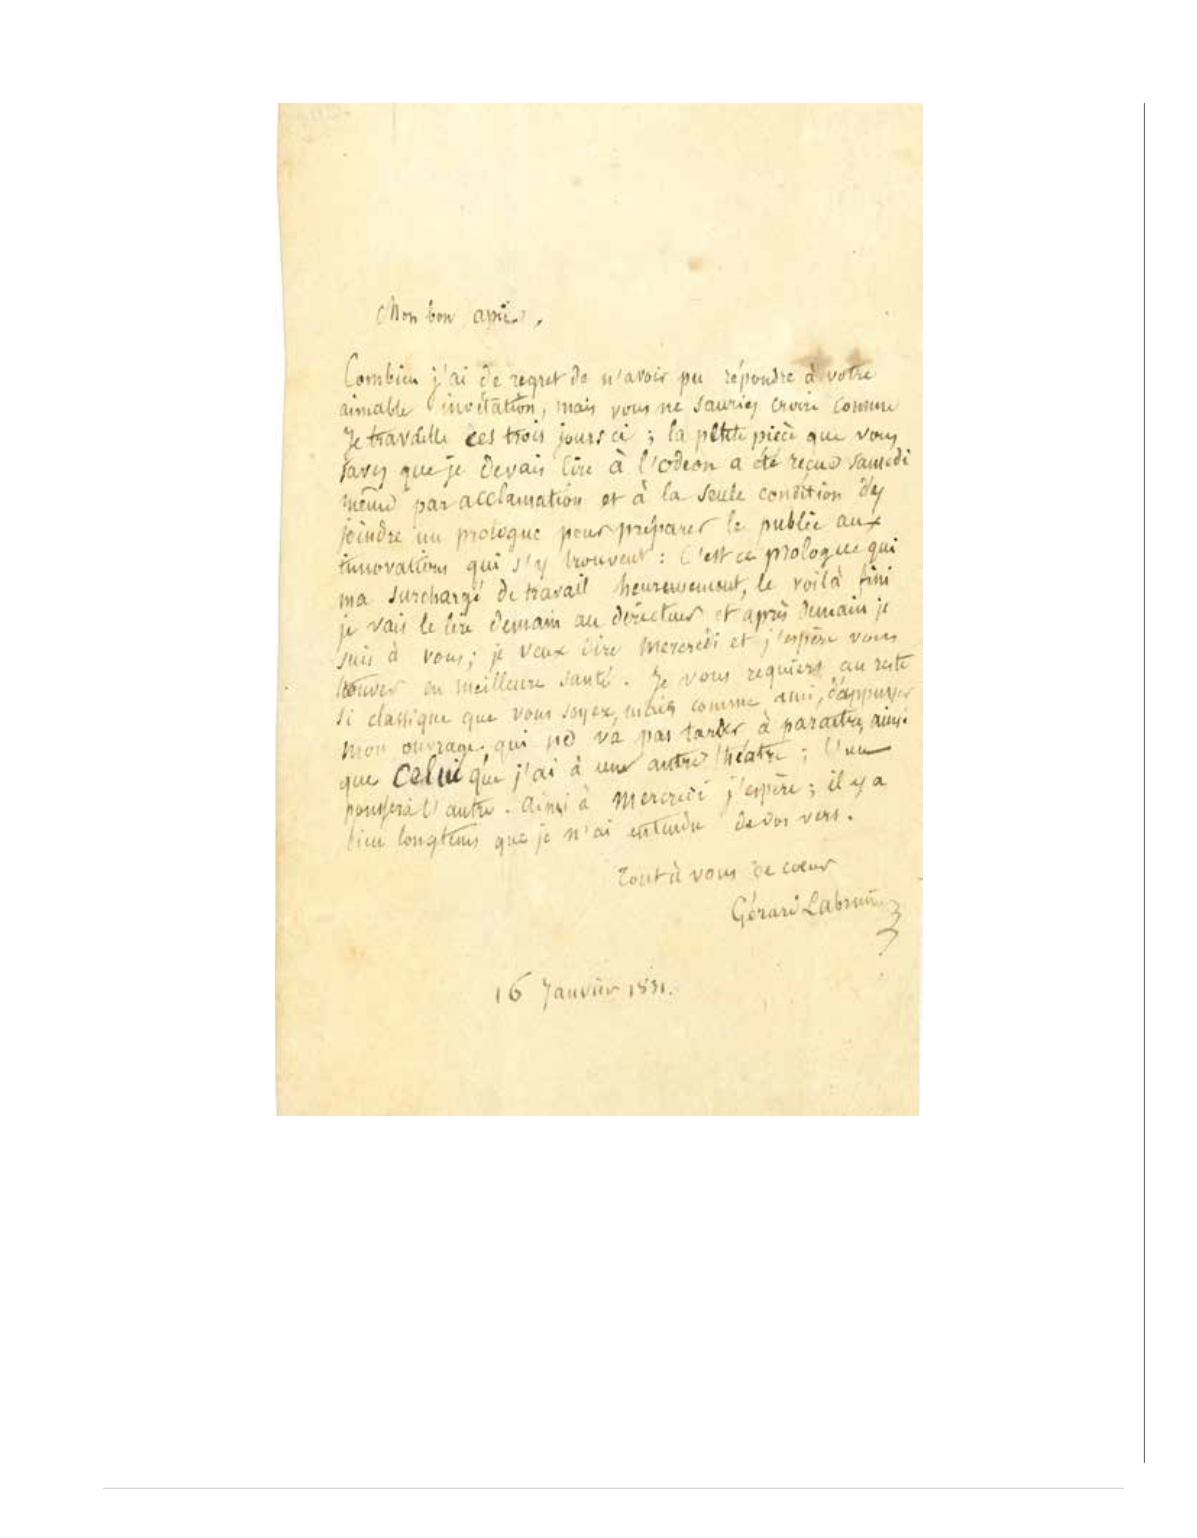 Mon bon ami,
Combien j'ai de regret de n'avoir pu répondre à votre
aimable invitation, mais vous ne sauriez croire comme
je travaille ces trois jours ci ; la petite pièce que vous
savez que je devais lire à l'odéon a été reçue samedi
même par acclamation et à la seule condition d'y
joindre un prologue pour préparer le public aux
innovations qui s'y trouvent : C'est ce prologue qui
ma surchargé de travail heureusement, le voilà fini
je vais le lire demain au directeur et après demain je
suis à vous ; je veux dire mercredi et j'espère vous
trouver en meilleure santé. Je vous requiers au reste
si classique que vous soyez, mais comme ami, d'appuyer
mon ouvrage qui ne va pas tarder à paraître, ainsi
que celui que j'ai à un autre théâtre ; l'un
poussera l'autre. Ainsi à Mercredi j'espère ; il y a
bien longtems que je n'ai entendu de vos vers.
Tout à vous de cœur
Gérard Labrunie
16 Janvier 1831.